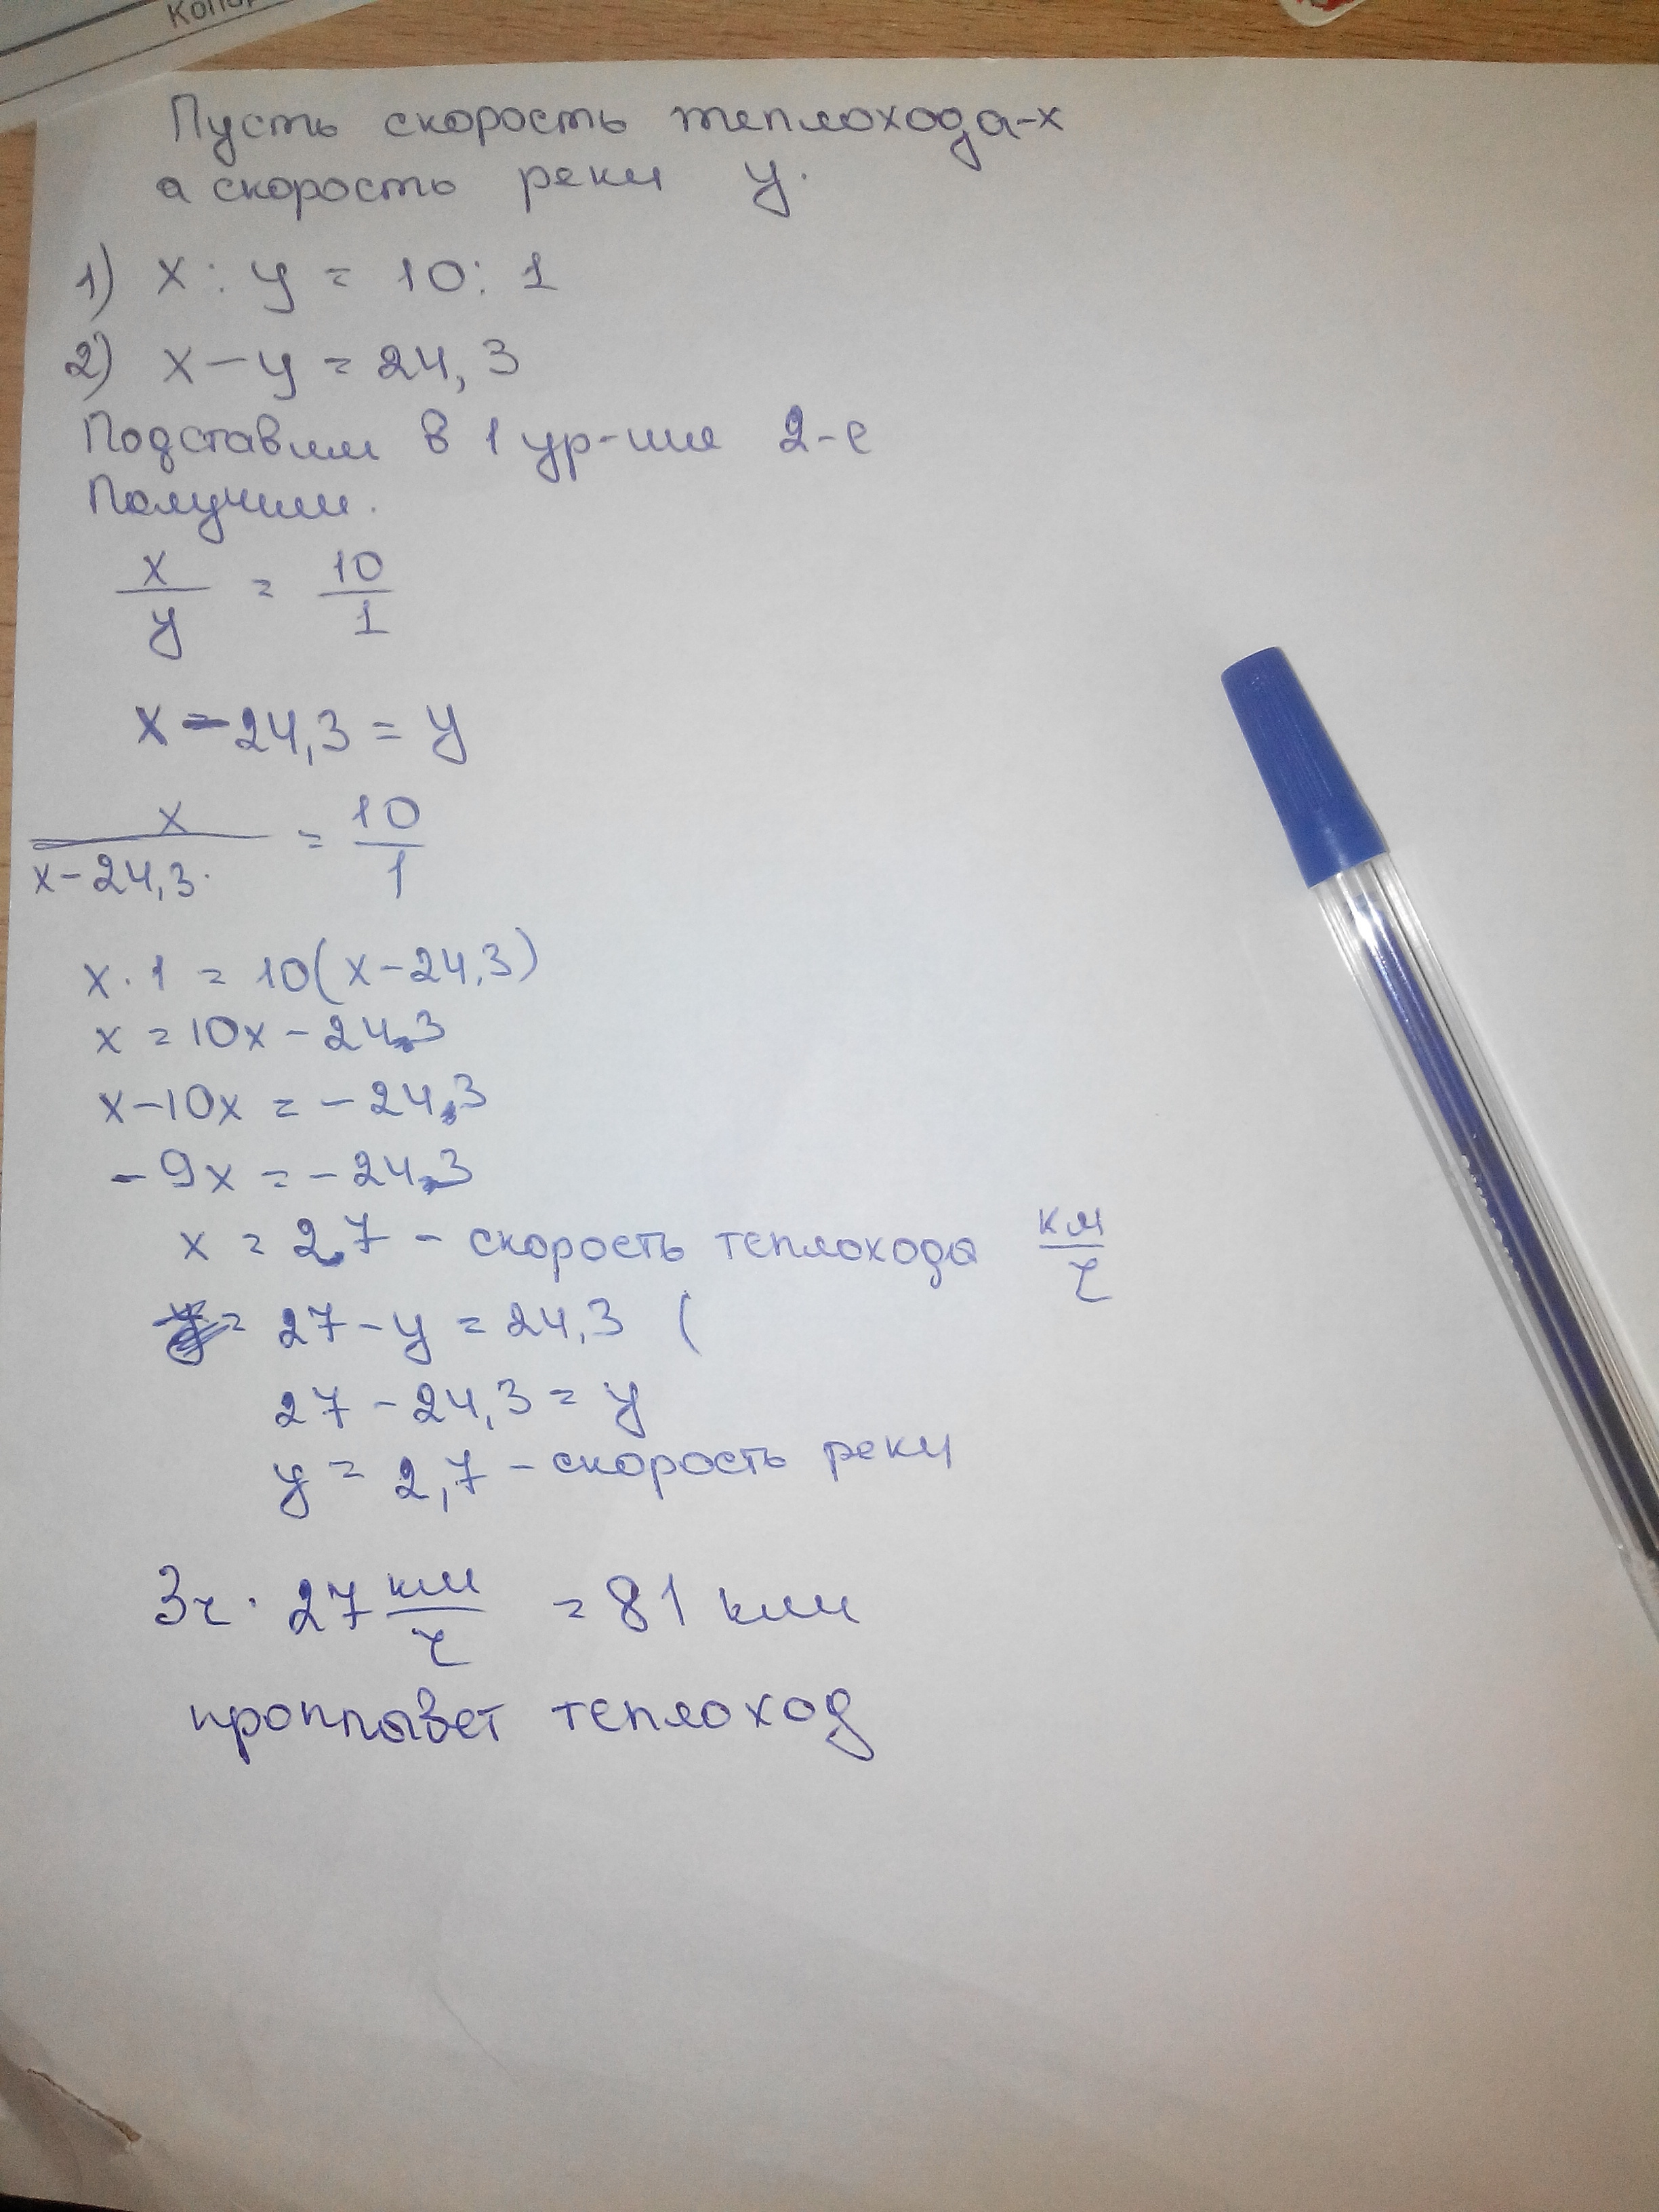 Пусть скорость теплохода-х
а скорость реки у.
1) х : у = 10 : 1
2) х - у = 24,3
Подставим в 1 ур-ние 2-е
Получим.
х/у = 10/1
х - 24,3 = у
х/(х-24,3) = 10/1
х · 1 = 10(х-24,3)
х = 10х - 243
х-10х = -243
-9х = -243
х = 27 - скорость теплохода км/ч
27 - у = 24,3 (
27 - 24,3 = у
у = 2,7 - скорость реки
3ч · 27 км/ч = 81 км
проплывет теплоход